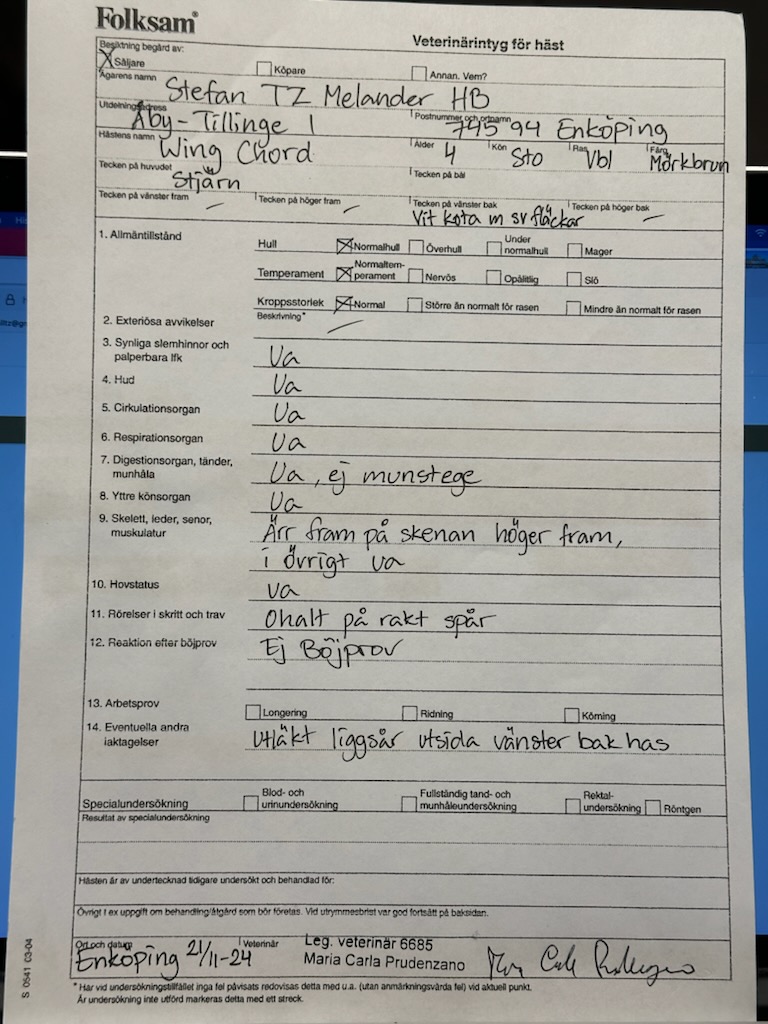 Folksam®
Veterinärintyg för häst
Besiktning begärd av:
X Säljare Köpare Annan. Vem?
Ägarens namn Stefan TZ Melander HB
Utdelningsadress Åby-Tillinge 1 Postnummer och ortnamn 745 94 Enköping
Hästens namn Wing Chord Ålder 4 Kön Sto Ras Vbl Färg Mörkbrun
Tecken på huvudet Stjärn Tecken på bål
Tecken på vänster fram – Tecken på höger fram – Tecken på vänster bak Vit kota m sv fläckar Tecken på höger bak –
1. Allmäntillstånd Hull X Normalhull Överhull Under normalhull Mager
Temperament X Normaltem- perament Nervös Opålitlig Slö
Kroppsstorlek X Normal Större än normalt för rasen Mindre än normalt för rasen
2. Exteriösa avvikelser Beskrivning* –
3. Synliga slemhinnor och palperbara lfk Ua
4. Hud Ua
5. Cirkulationsorgan Ua
6. Respirationsorgan Ua
7. Digestionsorgan, tänder, munhåla Ua, ej munstege
8. Yttre könsorgan Ua
9. Skelett, leder, senor, muskulatur Ärr fram på skenan höger fram,
i övrigt ua
10. Hovstatus ua
11. Rörelser i skritt och trav Ohalt på rakt spår
12. Reaktion efter böjprov Ej Böjprov
13. Arbetsprov Longering Ridning Körning
14. Eventuella andra iaktagelser Utläkt liggsår utsida vänster bak has
Specialundersökning Blod- och urinundersökning Fullständig tand- och munhåleundersökning Rektal- undersökning Röntgen
Resultat av specialundersökning
Hästen är av undertecknad tidigare undersökt och behandlad för:
Övrigt t ex uppgift om behandling/åtgärd som bör företas. Vid utrymmesbrist var god fortsätt på baksidan.
Ort och datum Enköping 21/11-24 Veterinär Leg. veterinär 6685
Maria Carla Prudenzano
* Har vid undersökningstillfället inga fel påvisats redovisas detta med u.a. (utan anmärkningsvärda fel) vid aktuell punkt.
Är undersökning inte utförd markeras detta med ett streck.
S 0541 03-04